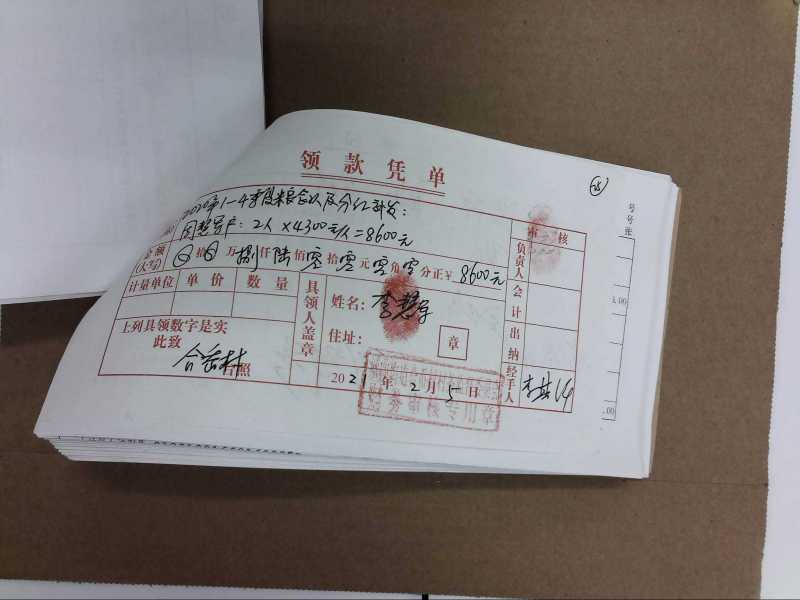 领款凭单
2020年1-4季度粮食以及分红补发：
2人×4300元/人=8600元
金额(大写) 拾 万 捌仟 陆佰 零拾 零元 零角 零分 正¥ 8600元
计量单位 单价 数量
具领人盖章
姓名：李慧
住址：
章
上列具领数字是实
此致
台照
2021年2月5日
财务审核专用章
审核
负责人
会计
出纳
经手人
号
号
张
.00
.00